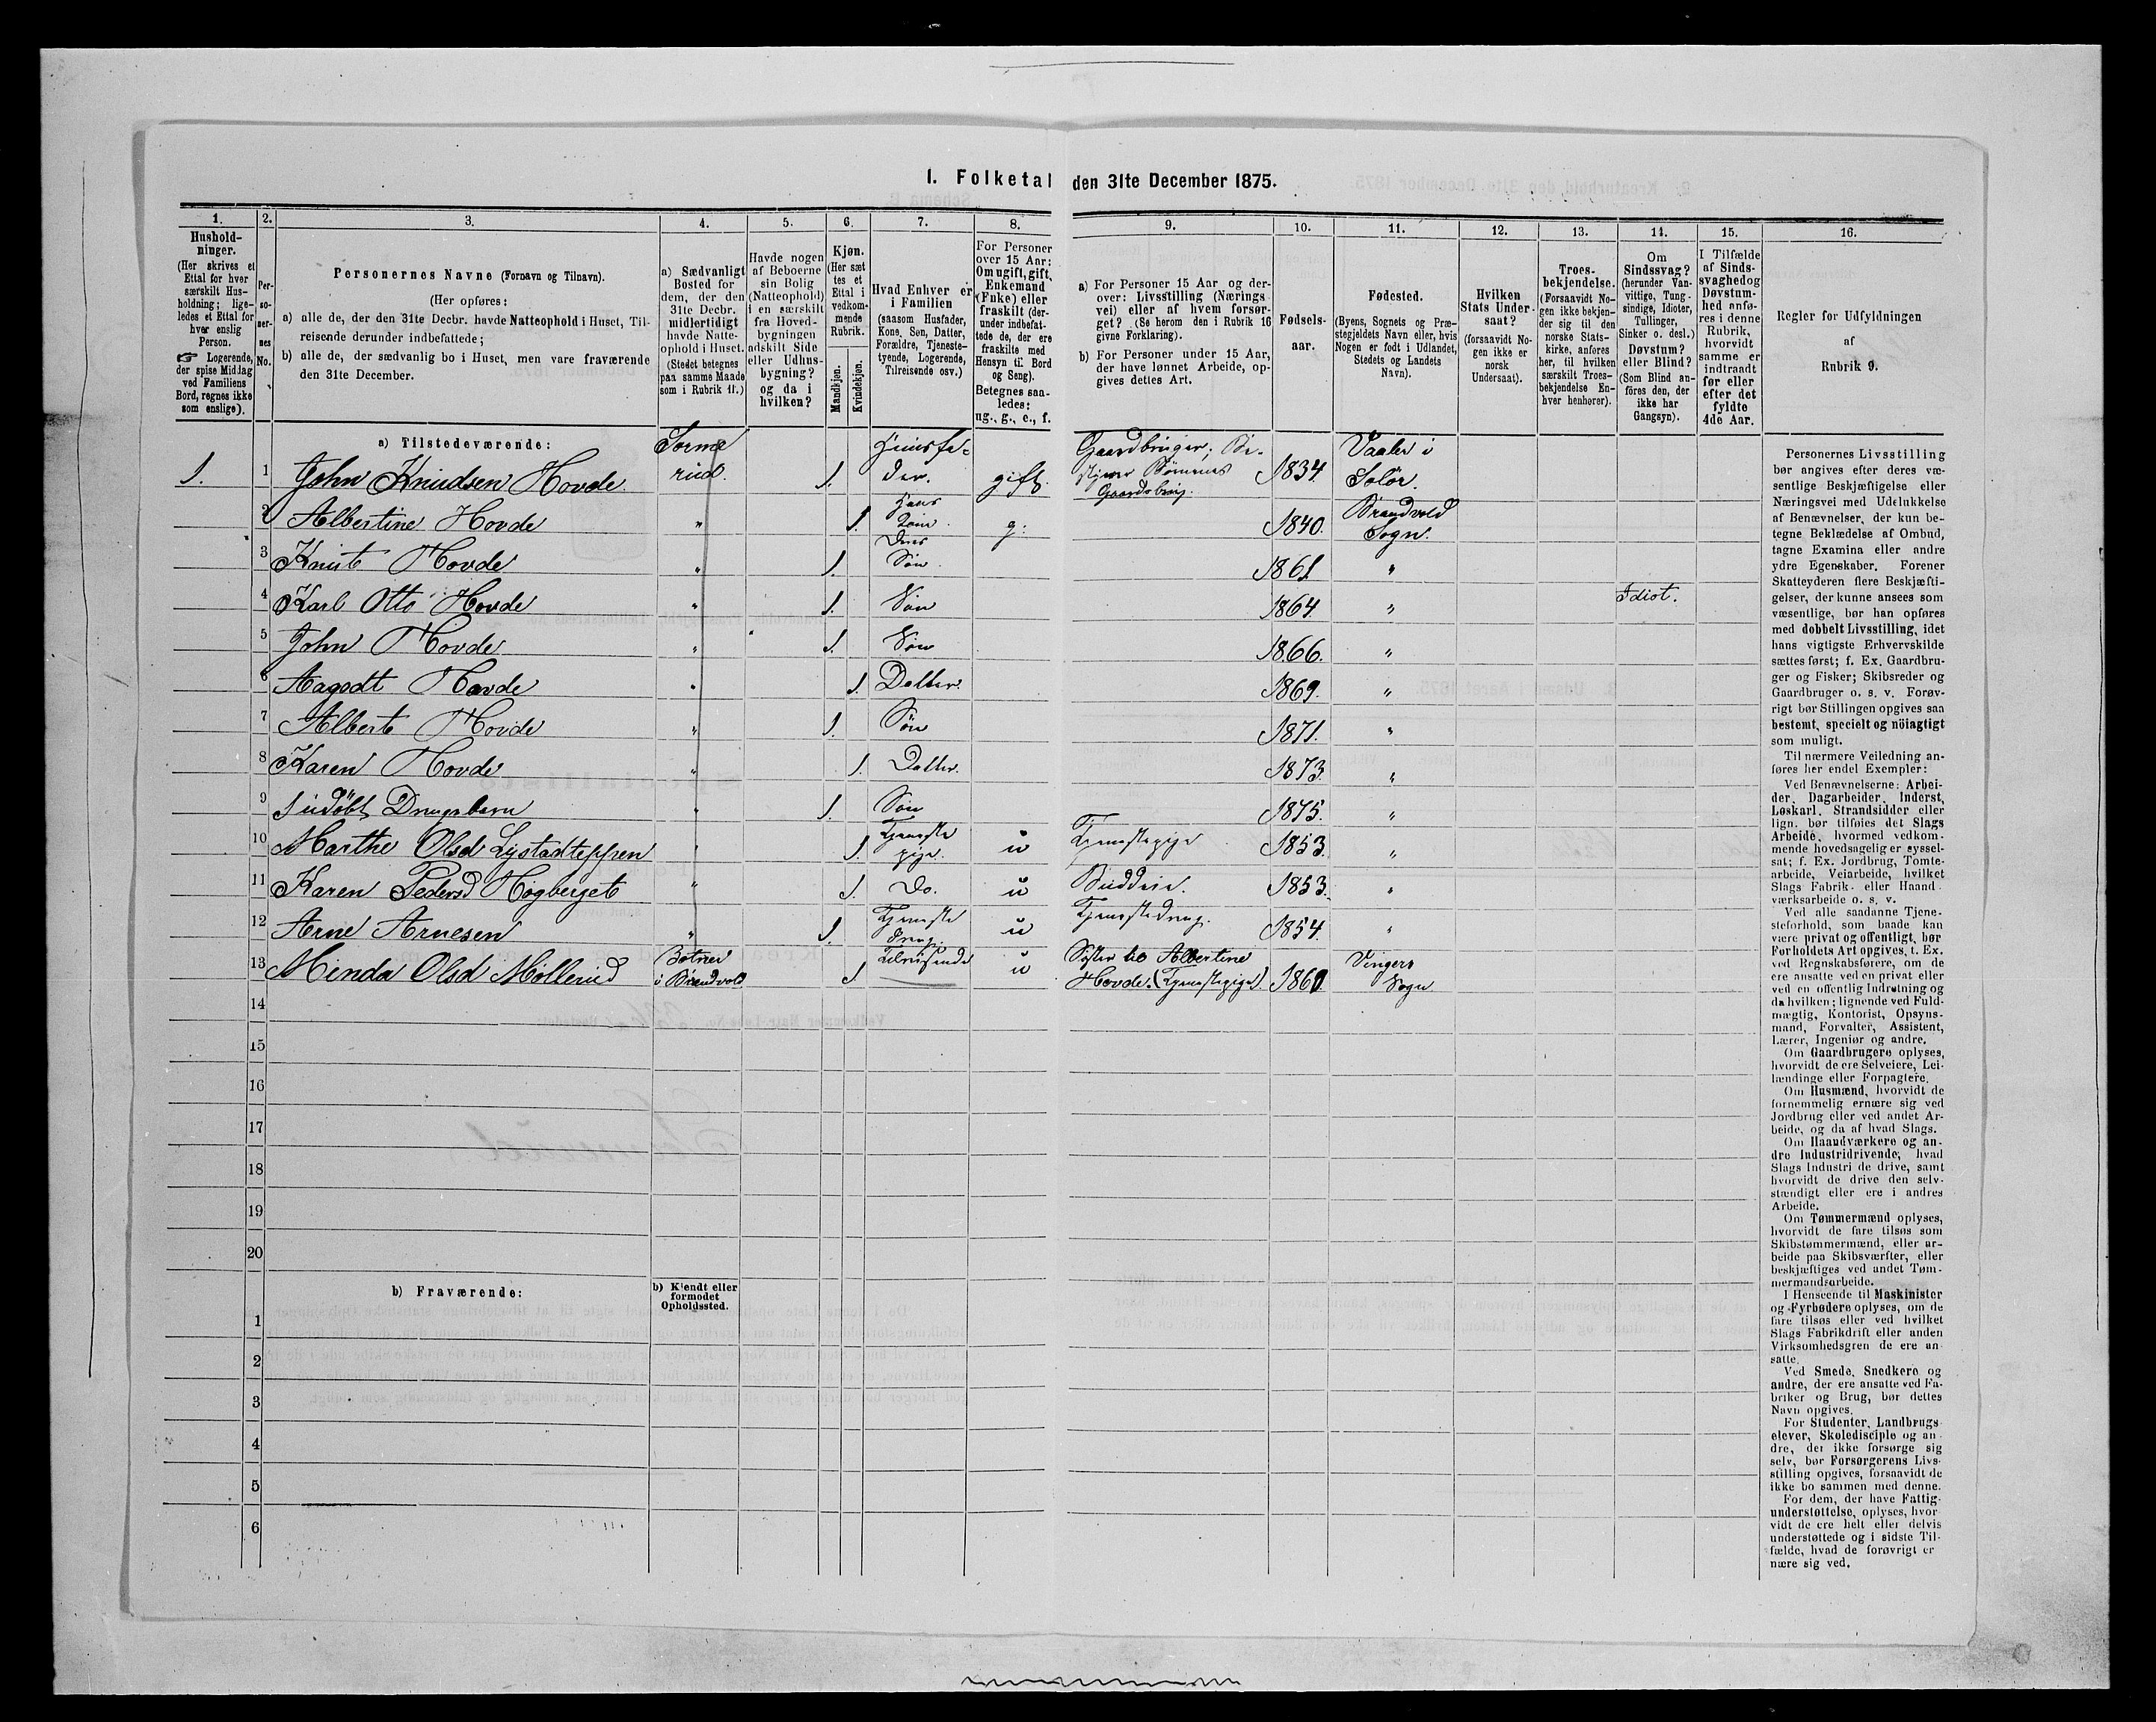 1. Folketal den 31te December 1875.
1.
2.
3.
4.
5.
6.
7.
8.
9.
10.
11.
12.
13.
14.
15.
16.
Hushold-
ninger.
(Her skrives et
Ettal for hver
særskilt Hus-
holdning; lige-
ledes et Ettal for
hver enslig
Person.
☞ Logerende,
der spise Middag
ved Familiens
Bord, regnes ikke
som enslige).
Per-
so-
ner-
nes
No.
Personernes Navne (Fornavn og Tilnavn).
(Her opføres:
a) alle de, der den 31te Decbr. havde Natteophold i Huset, Til-
reisende derunder indbefattede;
b) alle de, der sædvanlig bo i Huset, men vare fraværende
den 31te December.
a) Sædvanligt
Bosted for
dem, der den
31te Decbr.
midlertidigt
havde Natte-
ophold i Huset.
(Stedet betegnes
paa samme Maade
som i Rubrik 11.)
Havde nogen
af Beboerne
sin Bolig
(Natteophold)
i en særskilt
fra Hoved-
bygningen
adskilt Side
eller Udhus-
bygning?
og da i
hvilken?
Kjøn.
(Her sæt
tes et
Ettal i
vedkom-
mende
Rubrik.
Mandkjøn.
Kvindekjøn.
Hvad Enhver er
i Familien
(saasom Husfader,
Kone, Søn, Datter,
Forældre, Tjeneste-
tyende, Logerende,
Tilreisende osv.)
For Personer
over 15 Aar:
Om ugift, gift,
Enkemand
(Enke) eller
fraskilt (der-
under indbefat-
tede de, der ere
fraskilte med
Hensyn til Bord
og Seng).
Betegnes saa-
ledes:
ug., g., e., f.
a) For Personer 15 Aar og der-
over: Livsstilling (Nærings
vei) eller af hvem forsør-
get? (Se herom den i Rubrik 16
givne Forklaring).
b) For Personer under 15 Aar,
der have lønnet Arbeide, op-
gives dettes Art.
Fødsels-
aar.
Fødested.
(Byens, Sognets og Præ-
stegjeldets Navn eller, hvis
Nogen er født i Udlandet,
Stedets og Landets
Navn).
Hvilken
Stats Under-
saat?
(forsaavidt No-
gen ikke er
norsk
Undersaat).
Troes-
bekjendelse.
(Forsaavidt No-
gen ikke bekjen-
der sig til den
norske Stats-
kirke, anføres
her, til hvilken
særskilt Troes-
bekjendelse En-
hver henhører).
Om
Sindssvag?
(herunder Van-
vittige, Tung-
sindige, Idioter,
Tullinger,
Sinker o. desl.)
Døvstum?
eller Blind?
(Som Blind an-
föres den, der
ikke har
Gangsyn).
I Tilfælde
af Sinds-
svaghed og
Døvstum-
hed anfø-
res i denne
Rubrik,
hvorvidt
samme er
indtraadt
før eller
efter det
fyldte
4de Aar.
Regler for Udfyldningen
af
Rubrik 9.
a) Tilstedeværende:
1. 1 John Knudsen Hovde. Sorme rud. 1. Huusfa- der. gift Gaardbruger; Gaardsbrug. 1834. Vaaler i Solör.
2 Albertine Hovde " 1. Hans g. 1840. Brandvold Sogn.
3 Knut Hovde " 1. Deres Søn. 1861 "
4 Karl Otto Hovde " 1. Søn 1864. " Idiot.
5 John Hovde " 1. Søn 1866. "
6 Aagodt Hovde " 1. Datter. 1869. "
7 Albert Hovde " 1. Søn 1871. "
8 Karen Hovde " 1. Datter. 1873. "
9 Udöbt Drengebarn " 1. Søn 1875. "
10 Marthe Olsd Lystadteppen " 1. Tjeneste pige. u Tjenestepige 1853. "
11 Karen Pedersd Høgberget " 1. Do. u Buddeie. 1853. "
12 Arne Arnesen " 1. Tjeneste dreng. u Tjenestedreng. 1854. "
13 Menda Olsd Mollerud Botner i Brandvold 1 Tilreisende u Søster til Albertine Hovde. (Tjenestepige) 1860. Vinger Sogn
14
15
16
17
18
19
20
b) Fraværende:
b) Kjendt eller
formodet
Opholdssted.
1
2
3
4
5
6
Personernes Livsstilling
bør angives efter deres væ-
sentlige Beskjæftigelse eller
Næringsvei med Udelukkelse
af Benævnelser, der kun be-
tegne Beklædelse af Ombud,
tagne Examina eller andre
ydre Egenskaber. Forener
Skatteyderen flere Beskjæfti-
gelser, der kunne ansees som
væsentlige, bør han opføres
med dobbelt Livsstilling, idet
hans vigtigste Erhvervskilde
sættes først; f. Ex. Gaardbru-
ger og Fisker; Skibsreder og
Gaardbruger o. s. v. Forøv-
rigt bør Stillingen opgives saa
bestemt, specielt og nöiagtigt
som muligt.
Til nærmere Veiledning an-
føres her endel Exempler:
Ved Benævnelserne: Arbei-
der, Dagarbeider, Inderst,
Løskarl, Strandsidder eller
lign. bør tilføies det Slags
Arbeide, hvormed vedkom-
mende hovedsagelig er syssel-
sat; f. Ex. Jordbrug, Tomte-
arbeide, Veiarbeide, hvilket
Slags Fabrik- eller Haand-
værksarbeide o. s. v.
Ved alle saadanne Tjene-
steforhold, som baade kan
være privat og offentligt, bør
Forholdets Art opgives, t. Ex.
ved Regnskabsførere, om de
ere ansatte ved en privat eller
ved en offentlig Indretning og
da hvilken; lignende ved Fuld-
mægtig, Kontorist, Opsyns-
mand, Forvalter, Assistent,
Lærer, Ingeniør og andre.
Om Gaardbrugere oplyses,
hvorvidt de ere Selveiere, Lei-
lændinge eller Forpagtere.
Om Husmænd, hvorvidt de
fornemmelig ernære sig ved
Jordbrug eller ved andet Ar-
beide, og da af hvad Slags.
Om Haandværkere og an-
dre Industridrivende, hvad
Slags Industri de drive, samt
hvorvidt de drive den selv-
stændigt eller ere i andres
Arbeide.
Om Tømmermænd oplyses,
hvorvidt de fare tilsøs som
Skibstømmermænd, eller ar-
beide paa Skibsværfter, eller
beskjæftiges ved andet Tøm-
mermandsarbeide.
I Henseende til Maskinister
og Fyrbødere oplyses, om de
fare tilsøs eller ved hvilket
Slags Fabrikdrift eller anden
Virksomhedsgren de ere an
satte.
Ved Smede, Snedkere og
andre, der ere ansatte ved Fa-
briker og Brug, bør dettes
Navn opgives.
For Studenter, Landbrugs-
elever, Skoledisciple og an-
dre, der ikke forsørge sig
selv, bør Forsørgerens Livs-
stilling opgives, forsaavidt de
ikke bo sammen med denne.
For dem, der have Fattig-
understøttelse, oplyses, hvor-
vidt de ere helt eller delvis
understøttede og i sidste Til-
fælde, hvad de forøvrigt er-
nære sig ved.